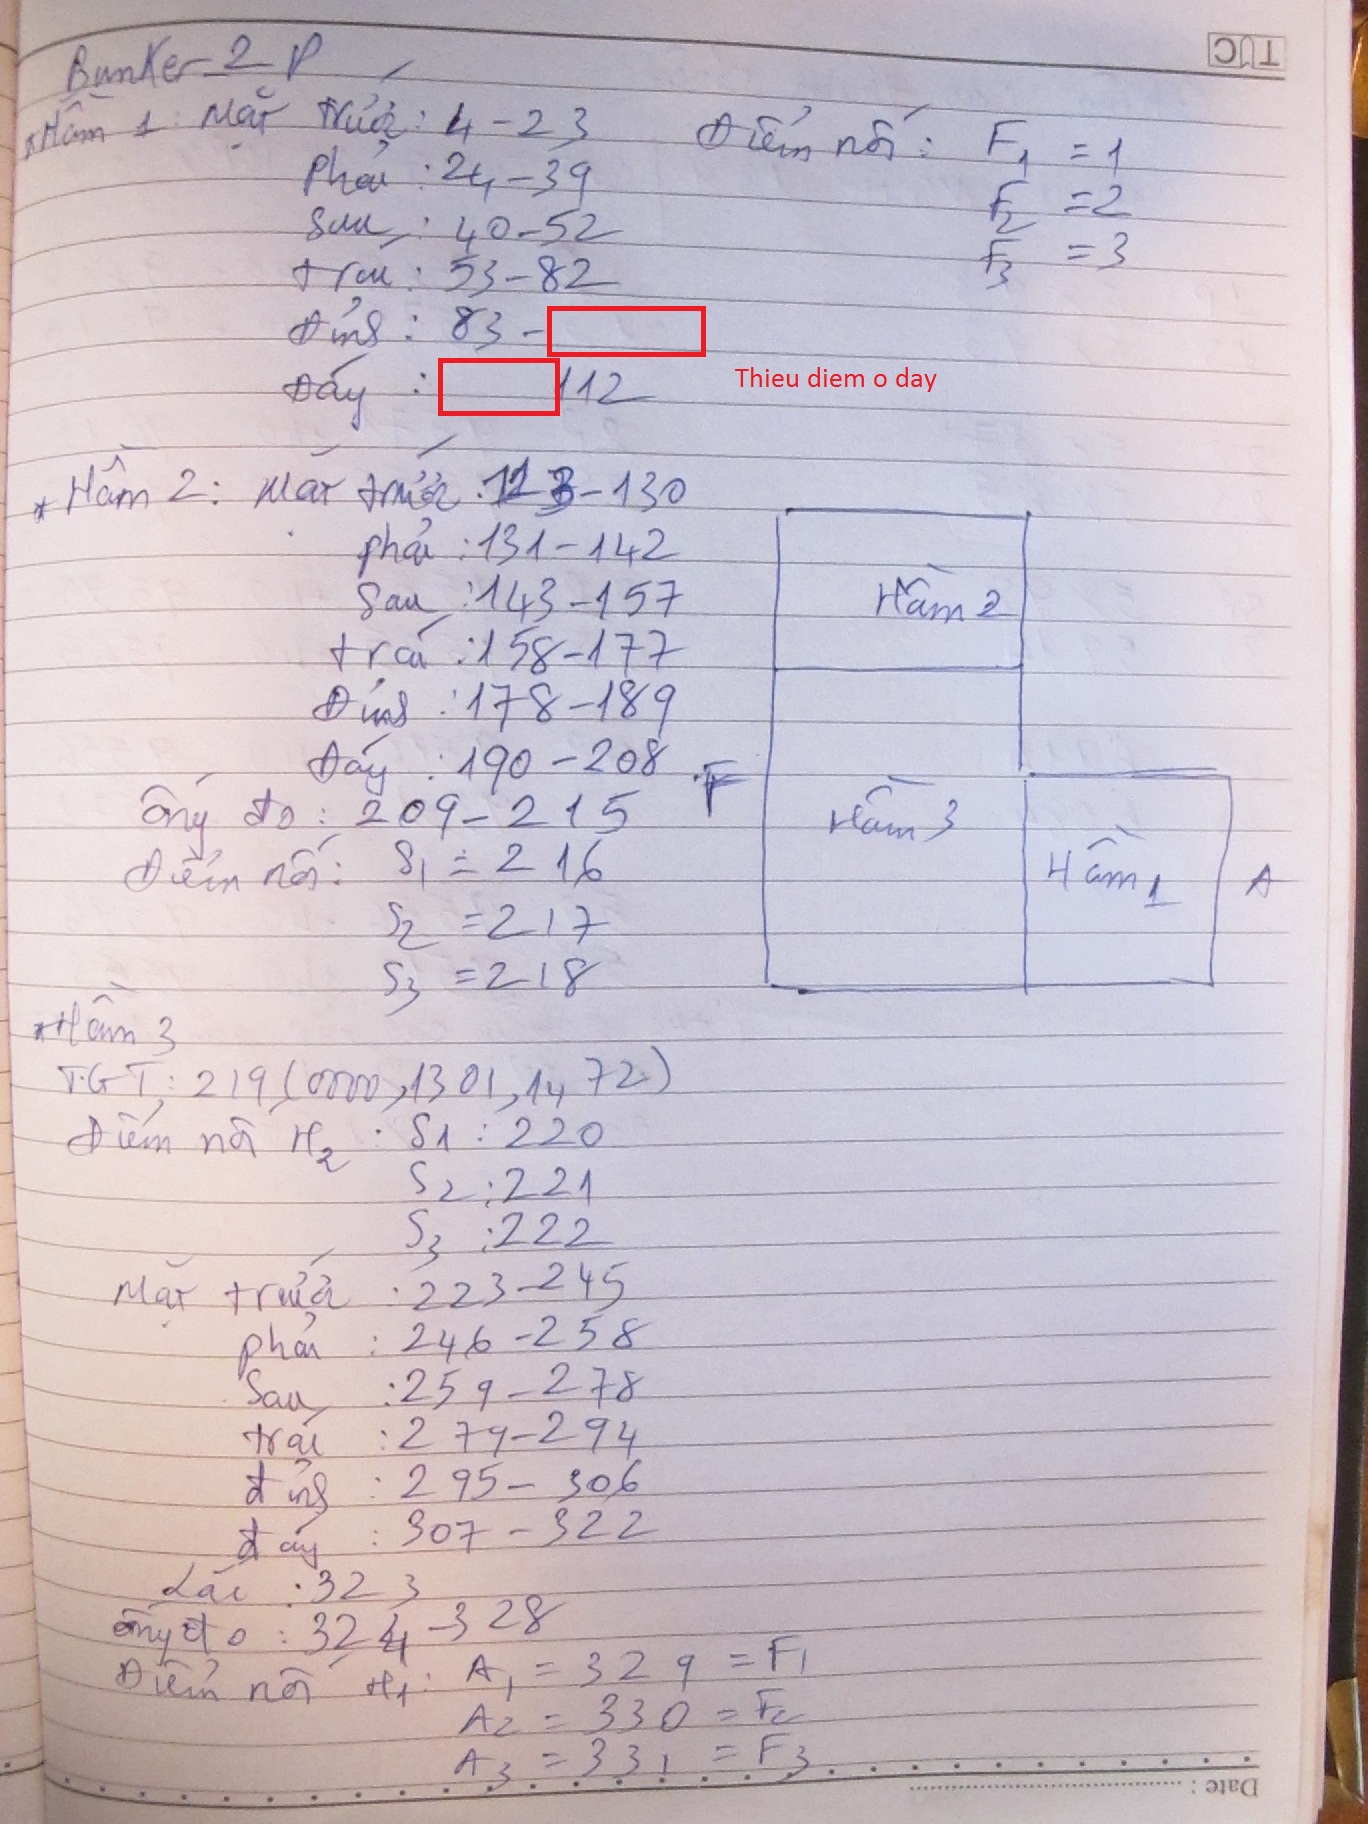 TUC
Bunker 2 P
*Hầm 1: Mặt trước: 4-23
Phải: 24-39
Sau: 40-52
trái: 53-82
Đỉnh: 83-
Đáy: 112
Thieu diem o day
Điểm nối: F1 = 1
F2 = 2
F3 = 3
*Hầm 2: Mặt trước: 113-130
phải: 131-142
Sau: 143-157
trái: 158-177
Đỉnh: 178-189
Đáy: 190-208
ống đo: 209-215
Điểm nối: S1 = 216
S2 = 217
S3 = 218
Hầm 2
F
Hầm 3
Hầm 1
A
*Hầm 3
T.GT: 219 (0000, 1301, 1472)
Điểm nối H2: S1: 220
S2: 221
S3: 222
Mặt trước: 223-245
phải: 246-258
Sau: 259-278
trái: 279-294
đỉnh: 295-306
đáy: 307-322
Lác: 323
ống đo: 324-328
Điểm nối H1: A1 = 329 = F1
A2 = 330 = F2
A3 = 331 = F3
Date: